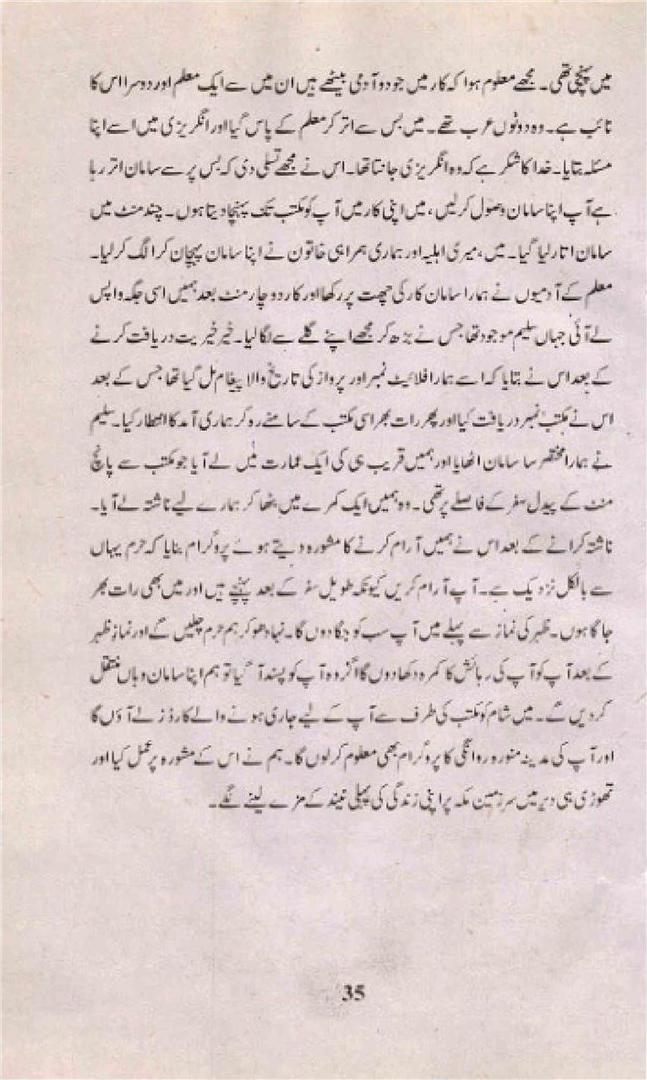 میں پہنچی تھی۔ مجھے معلوم ہوا کہ کار میں جو دو آدمی بیٹھے ہیں ان میں سے ایک معلم اور دوسرا اس کا
نائب ہے۔ وہ دونوں عرب تھے۔ میں بس سے اتر کر معلم کے پاس گیا اور انگریزی میں اسے اپنا
مسئلہ بتایا۔ خدا کا شکر ہے کہ وہ انگریزی جانتا تھا۔ اس نے مجھے تسلی دی کہ بس پر سے سامان اتر رہا
ہے آپ اپنا سامان وصول کر لیں، میں اپنی کار میں آپ کو مکتب تک پہنچا دیتا ہوں۔ چند منٹ میں
سامان اتار لیا گیا۔ میں، میری اہلیہ اور ہماری ہمراہی خاتون نے اپنا سامان پہچان کر الگ کر لیا۔
معلم کے آدمیوں نے ہمارا سامان کار کی چھت پر رکھا اور کار دو چار منٹ بعد ہمیں اسی جگہ واپس
لے آئی جہاں سلیم موجود تھا جس نے بڑھ کر مجھے اپنے گلے سے لگا لیا۔ خیر خیریت دریافت کرنے
کے بعد اس نے بتایا کہ اسے ہمارا فلائیٹ نمبر اور پرواز کی تاریخ والا پیغام مل گیا تھا جس کے بعد
اس نے مکتب نمبر دریافت کیا اور پھر رات بھر اسی مکتب کے سامنے رہ کر ہماری آمد کا انتظار کیا۔ سلیم
نے ہمارا مختصر سا سامان اٹھایا اور ہمیں قریب ہی کی ایک عمارت میں لے آیا جو مکتب سے پانچ
منٹ کے پیدل سفر کے فاصلے پر تھی۔ وہ ہمیں ایک کمرے میں بٹھا کر ہمارے لیے ناشتہ لے آیا۔
ناشتہ کرانے کے بعد اس نے ہمیں آرام کرنے کا مشورہ دیتے ہوئے پروگرام بنایا کہ حرم یہاں
سے بالکل نزدیک ہے۔ آپ آرام کریں کیونکہ طویل سفر کے بعد پہنچے ہیں اور میں بھی رات بھر
جاگا ہوں۔ ظہر کی نماز سے پہلے میں آپ سب کو جگا دوں گا۔ نہا دھو کر ہم حرم چلیں گے اور نماز ظہر
کے بعد آپ کو آپ کی رہائش کا کمرہ دکھا دوں گا اگر وہ آپ کو پسند آ گیا تو ہم اپنا سامان وہاں منتقل
کر دیں گے۔ میں شام کو مکتب کی طرف سے آپ کے لیے جاری ہونے والے کارڈز لے آؤں گا
اور آپ کی مدینہ منورہ روانگی کا پروگرام بھی معلوم کر لوں گا۔ ہم نے اس کے مشورہ پر عمل کیا اور
تھوڑی ہی دیر میں سرزمین مکہ پر اپنی زندگی کی پہلی نیند کے مزے لینے لگے۔
35